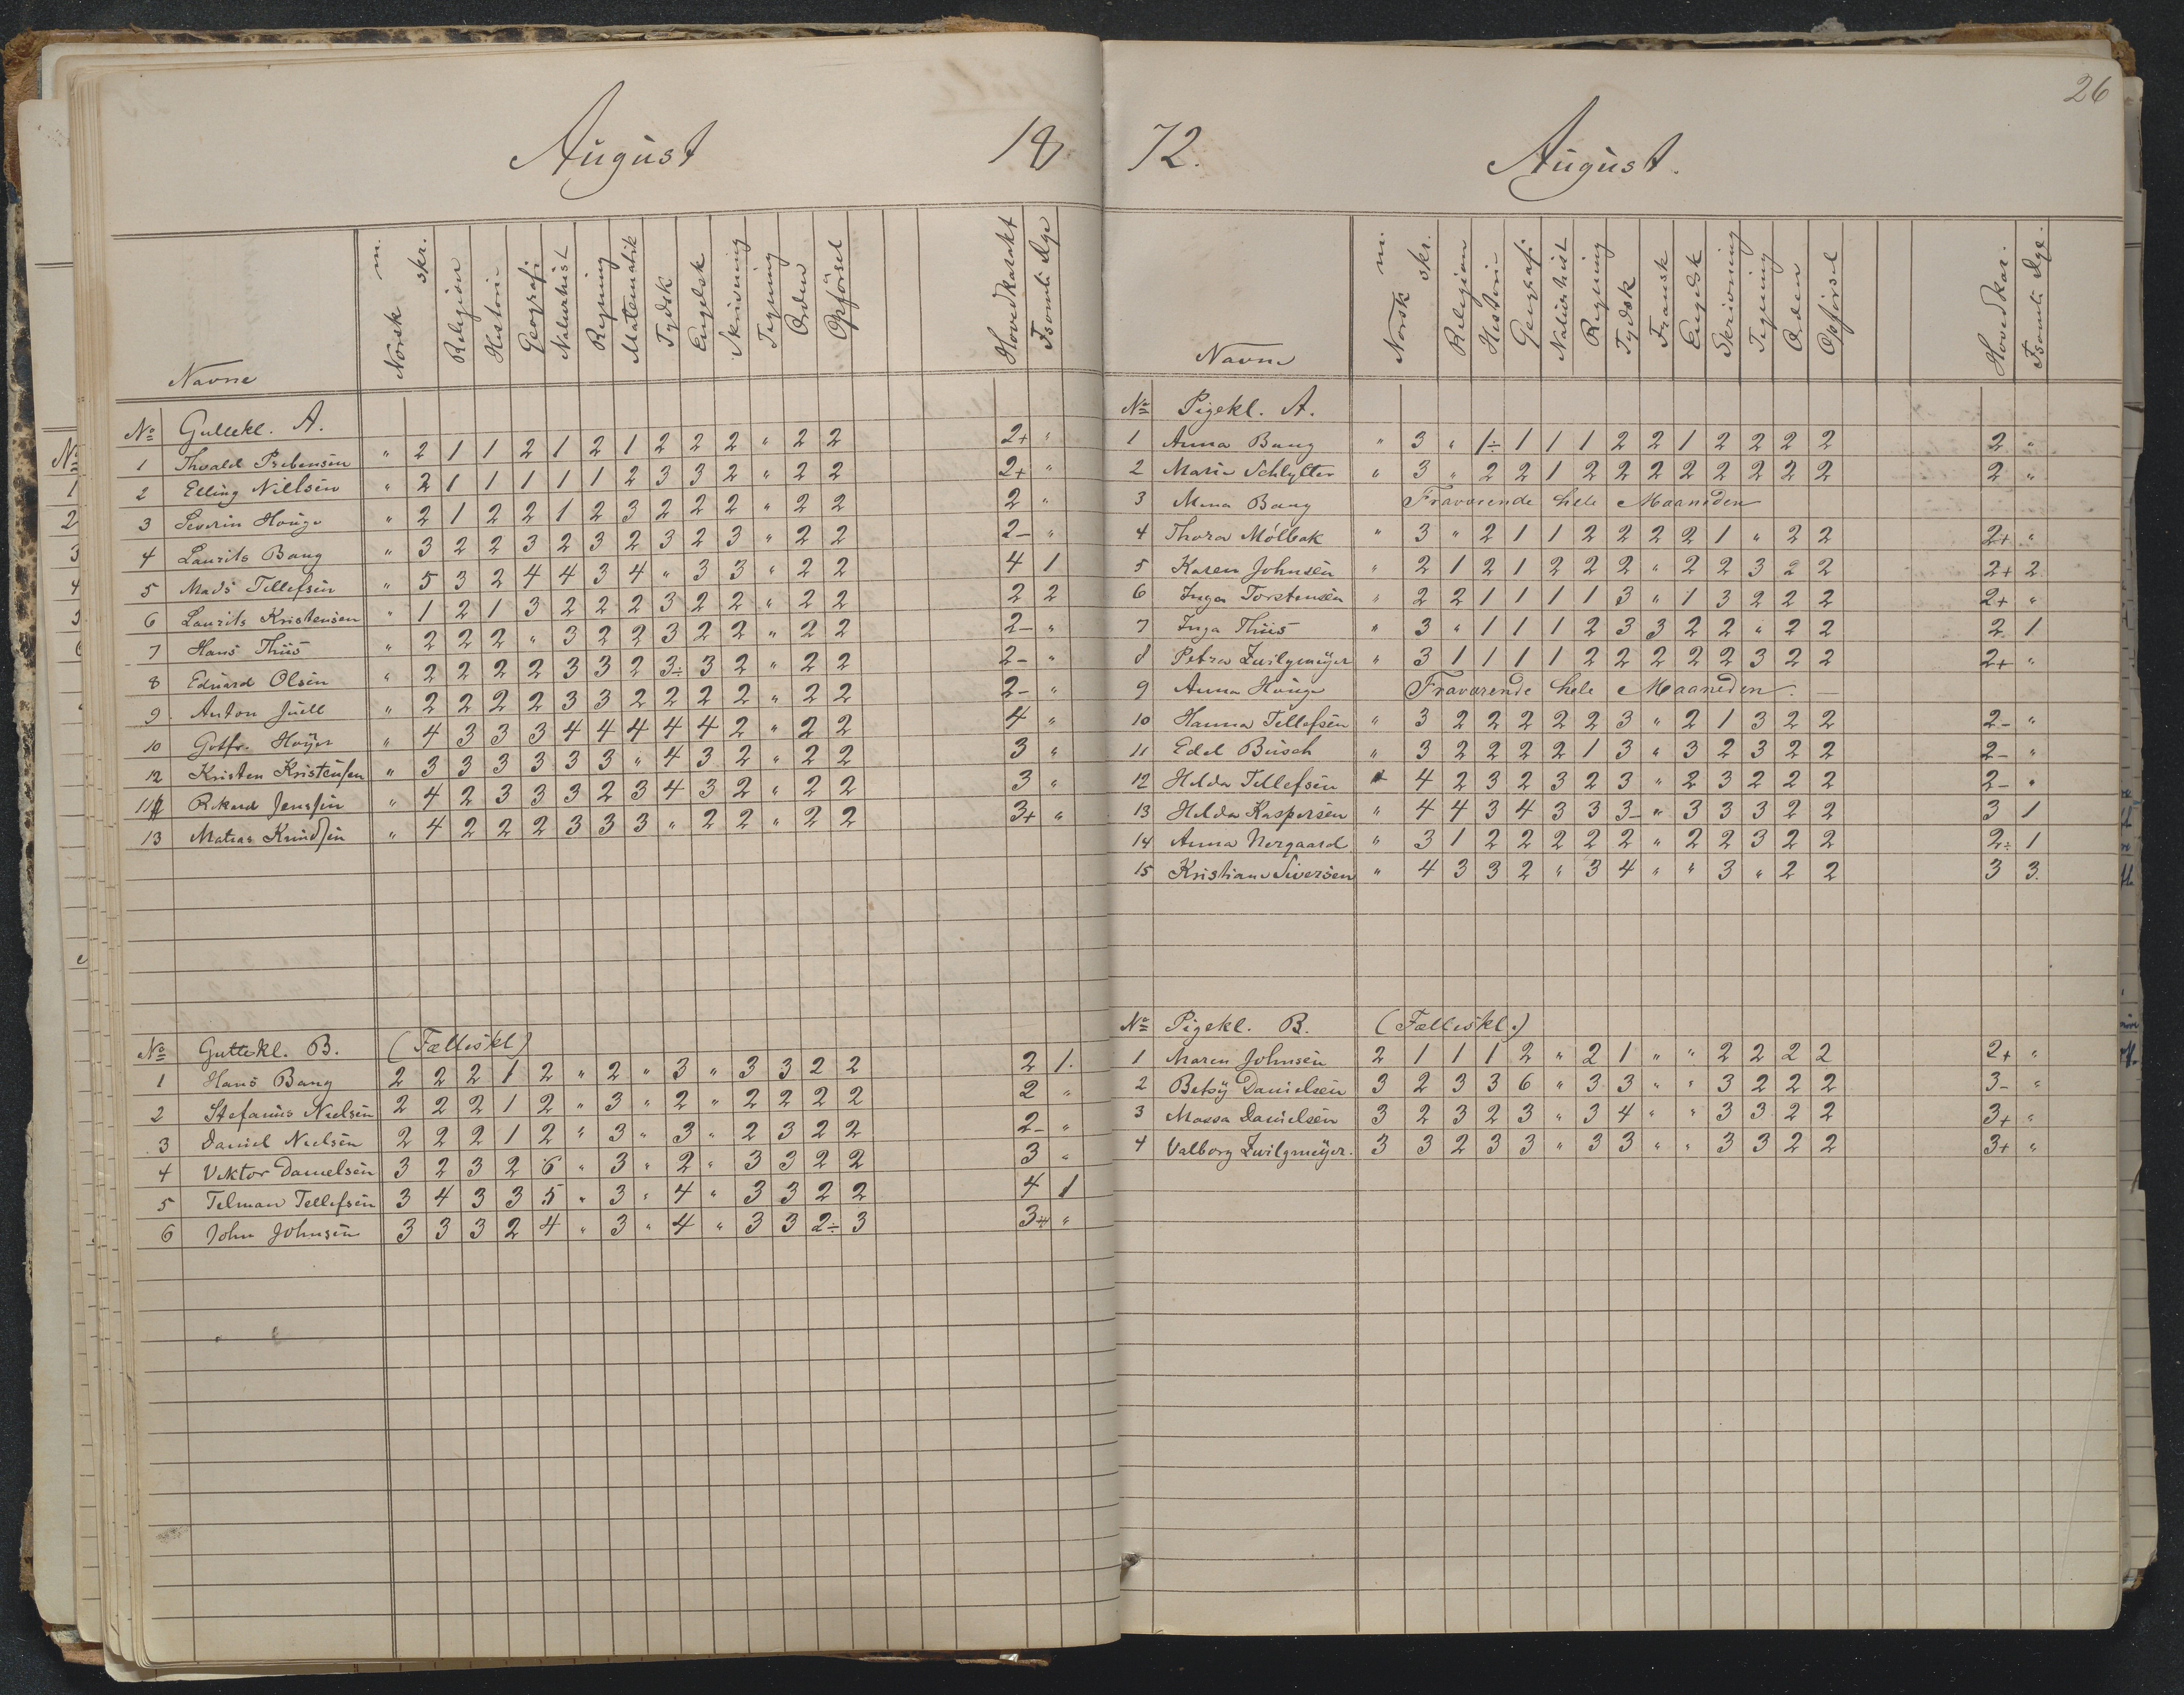 August 18
Navne Norsk m. skr. Religion Historie Geografi Naturhist Regning Matematik Tydsk Engelsk Skrivning Tegning Orden Opførsel Hovedkarakt Fsømte Dge
No Guttekl. A.
1 Thvald Prebensen " 2 1 1 2 1 2 1 2 2 2 " 2 2 2+ "
2 Elling Nielsen " 2 1 1 1 1 1 2 3 3 2 " 2 2 2+ "
3 Severin Houge " 2 1 2 2 1 2 3 2 2 2 " 2 2 2 "
4 Laurits Bang " 3 2 2 3 2 3 2 3 2 3 " 2 2 2- "
5 Mads Tellefsen " 5 3 2 4 4 3 4 " 3 3 " 2 2 4 1
6 Laurits Kristensen " 1 2 1 3 2 2 2 3 2 2 " 2 2 2 2
7 Hans Thiis " 2 2 2 " 3 2 2 3 2 2 " 2 2 2- "
8 Eduard Olsen " 2 2 2 2 3 3 2 3÷ 3 2 " 2 2 2- "
9 Anton Juell " 2 2 2 2 3 3 2 2 2 2 " 2 2 2- "
10 Gotfr. Høyer " 4 3 3 3 4 4 4 4 4 2 " 2 2 4 "
12 Kristen Kristensen " 3 3 3 3 3 3 " 4 3 2 " 2 2 3 "
11 Rikard Jenssen " 4 2 3 3 3 2 3 4 3 2 " 2 2 3 "
13 Matias Knudsen " 4 2 2 2 3 3 3 " 2 2 " 2 2 3+ "
No Guttekl. B. (Fællèskl)
1 Hans Bang 2 2 2 1 2 " 2 " 3 " 3 3 2 2 2 1.
2 Stefanus Nielsen 2 2 2 1 2 " 3 " 2 " 2 2 2 2 2 "
3 Daniel Nielsen 2 2 2 1 2 " 3 " 3 " 2 3 2 2 2- "
4 Viktor Danielsen 3 2 3 2 6 " 3 " 2 " 3 3 2 2 3 "
5 Telman Tellefsen 3 4 3 3 5 " 3 " 4 " 3 3 2 2 4 1
6 John Johnsen 3 3 3 2 4 " 3 " 4 " 3 3 2÷ 3 3+ "
26
72. August.
Navne Norsk m. skr. Religion Historie Geografi Naturhist Regning Tydsk Fransk Engelsk Skrivning Tegning Orden Opførsel Hovedkar. Fsømte Dge.
No Pigekl. A.
1 Anna Bang " 3 " 1÷ 1 1 1 2 2 1 2 2 2 2 2 "
2 Marie Schlytter " 3 " 2 2 1 2 2 2 2 2 2 2 2 2 "
3 Mina Bang Fraværende hele Maaneden
4 Thora Mølbak " 3 " 2 1 1 2 2 2 2 1 " 2 2 2+ "
5 Karen Johnsen " 2 1 2 1 2 2 2 " 2 2 3 2 2 2+ 2
6 Inga Torstensen " 2 2 1 1 1 1 3 " 1 3 2 2 2 2+ "
7 Inga Thiis " 3 " 1 1 1 2 3 3 2 2 " 2 2 2 1
8 Petra Zwilgmeÿer " 3 1 1 1 1 2 2 2 2 2 3 2 2 2+ "
9 Anna Houge Fraværende hele Maaneden. —
10 Hanna Tellefsen " 3 2 2 2 2 2 3 " 2 1 3 2 2 2- "
11 Edel Busch " 3 2 2 2 2 1 3 " 3 2 3 2 2 2- "
12 Helda Tellefsen " 4 2 3 2 3 2 3 " 2 3 2 2 2 2- "
13 Helda Kaspersen " 4 4 3 4 3 3 3- " 3 3 3 2 2 3 1
14 Anna Nergaard " 3 1 2 2 2 2 2 " 2 2 3 2 2 2÷ 1
15 Kristiane Siversen " 4 3 3 2 " 3 4 " " 3 " 2 2 3 3.
No Pigekl. B. (Fælleskl.)
1 Maren Johnsen 2 1 1 1 2 " 2 1 " " 2 2 2 2 2+ "
2 Betsÿ Danielsen 3 2 3 3 6 " 3 3 " " 3 2 2 2 3- "
3 Massa Danielsen 3 2 3 2 3 " 3 4 " " 3 3 2 2 3+ "
4 Valborg Zwilgmeÿer. 3 3 2 3 3 " 3 3 " " 3 3 2 2 3+ "